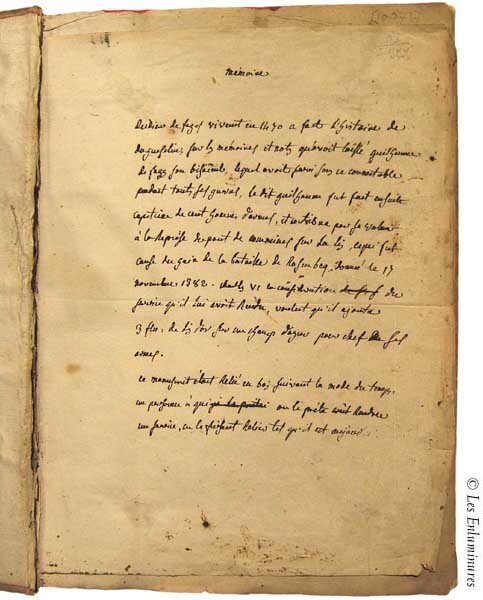 memoire
de fages vivent en 1470 a fait L'histoire de
duguesclin, sur les memoires et nots qu'avoit laissé guilhaume
de fages son bisaieul, lequel avoit servi sous ce connetable
pendant touts ses guerres, le dit guilhaume fut fait ensuite
capitaine de cent hommes d'armes, et contribua par sa valeur
à la reprise du pont de commines sur La Lis, ce qui fut
cause du gain de la bataille de Rosenbeq, donneé le 17
novembre 1382. charles VI en consideration du
service qu'il lui avoit Rendu, voulent qu'il ajouta
3 fleurs de lis d'or sur un champ d'azur pour chef de ses
armes.
ce manuscrit étant Relié en bois suivant la mode du temps,
une personne à qui on le preta crût Rendre
un service, en le faisant Relier tel qu'il est aujourd.
© Les Enluminures